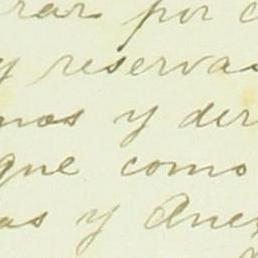 rar por c
y reservas
nos y der
que como
as y Anex